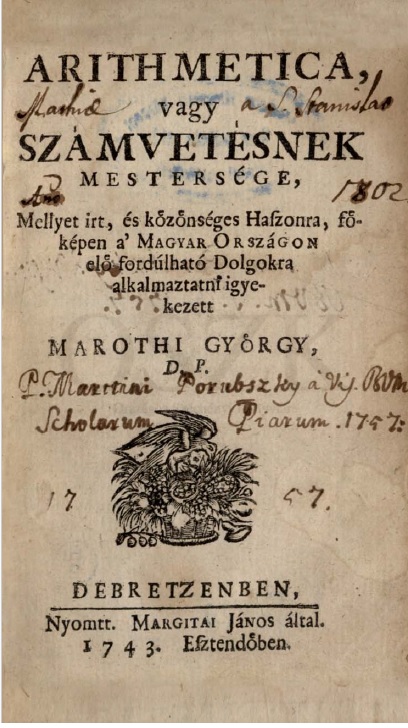 ARITHMETICA,
Mathiæ vagy a S. Stanislao
SZÁMVETÉSNEK
MESTERSéGE,
Ao 1802
Mellyet írt, és kőzőnséges Haſzonra, fő-
képen a' MAGYAR ORSZÁGON
elő fordúlható Dolgokra
alkalmaztatni igye-
kezett
MAROTHI GYÖRGY,
D. P.
P. Martini Porubszky à Vis. BVM
Scholarum Piarum. 1757.
17 57.
DEBRETZENBEN,
Nyomtt. MARGITAI JÁNOS által.
1743. Eſztendőben.